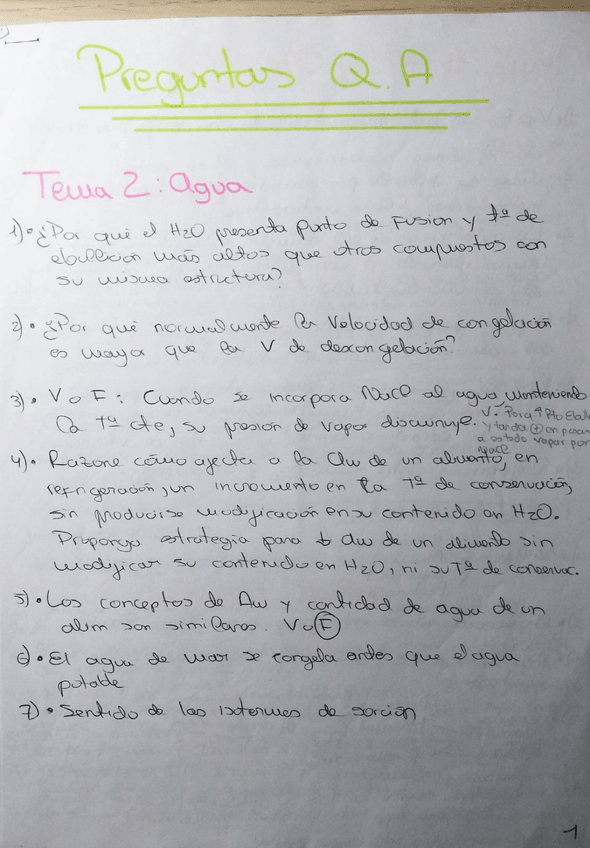 Preguntas Q.A
Tema 2: Agua
1)• ¿Por qué el H2O presenta punto de Fusion y tª de
ebullición más altos que otros compuestos con
su misma estructura?
2)• ¿Por qué normalmente la Velocidad de congelación
es mayor que la V de descongelación?
3)• V o F: Cuando se incorpora NaCl al agua manteniendo
la Tª cte, su presión de vapor disminuye. V. Porq ↑ Pto Ebull
y tarda ⊕ en pasar
a estado vapor por
NaCl
4)• Razone cómo afecta a la aw de un alimento, en
refrigeración, un incremento en la Tª de conservación,
sin producirse modificación en su contenido en H2O.
Proponga estrategia para ↓ aw de un alimento sin
modificar su contenido en H2O, ni su Tª de conservac.
5)• Los conceptos de Aw y cantidad de agua de un
alim son similares. V o F
6)• El agua de mar se congela antes que el agua
potable
7)• Sentido de las isotermes de sorción
1